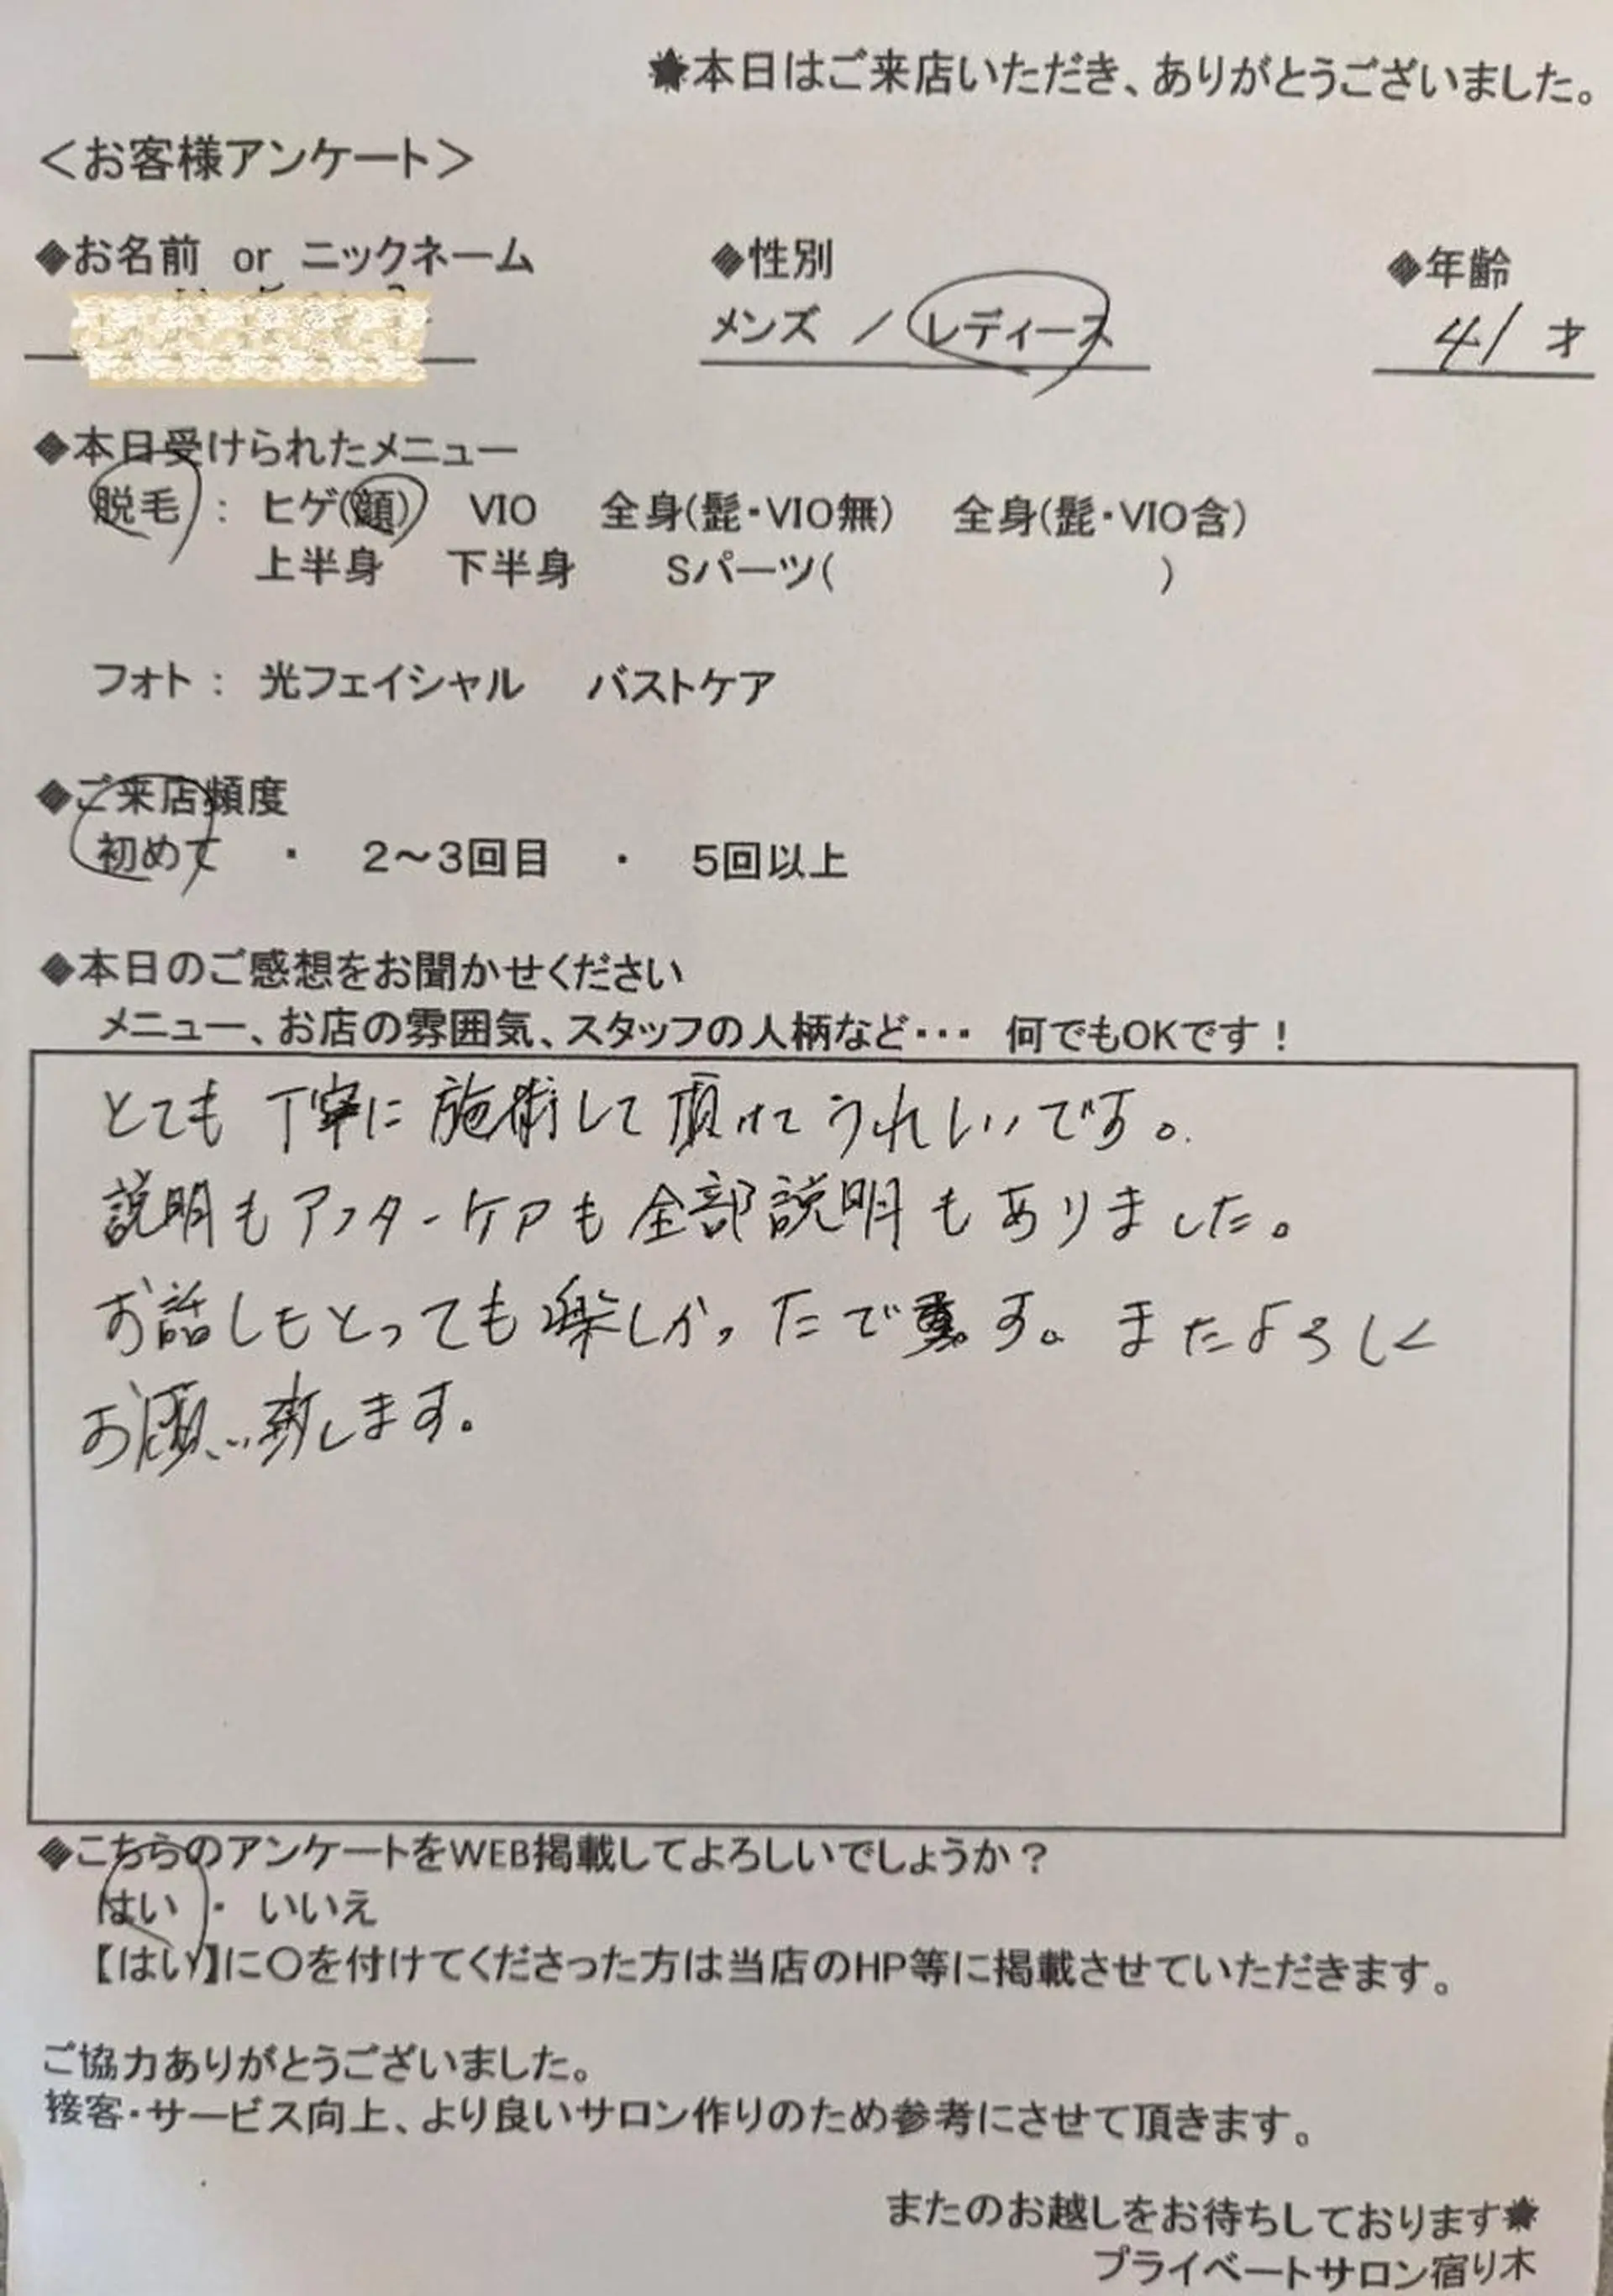 ★本日はご来店いただき、ありがとうございました。
＜お客様アンケート＞
◆お名前 or ニックネーム ◆性別 ◆年齢
メンズ ／ レディース 41 才
◆本日受けられたメニュー
脱毛 ： ヒゲ(顔) VIO 全身(髭・VIO無) 全身(髭・VIO含)
上半身 下半身 Sパーツ( )
フォト ： 光フェイシャル バストケア
◆ご来店頻度
初めて ・ 2～3回目 ・ 5回以上
◆本日のご感想をお聞かせください
メニュー、お店の雰囲気、スタッフの人柄など・・・ 何でもOKです！
とても丁寧に施術して頂けてうれしいです。
説明もアフターケアも全部説明もありました。
お話しもとっても楽しかったです。またよろしく
お願い致します。
◆こちらのアンケートをWEB掲載してよろしいでしょうか？
はい ・ いいえ
【はい】に○を付けてくださった方は当店のHP等に掲載させていただきます。
ご協力ありがとうございました。
接客・サービス向上、より良いサロン作りのため参考にさせて頂きます。
またのお越しをお待ちしております★
プライベートサロン宿り木